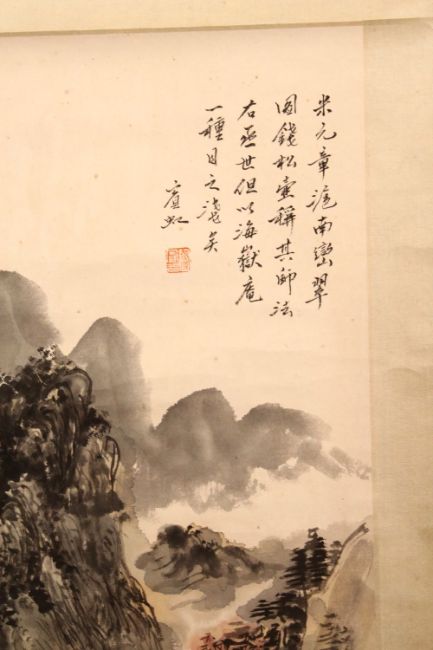 米元章南巒翠
圖錢松壺稱其師法
右丞世但以海嶽庵
一種目之淺矣
賓虹